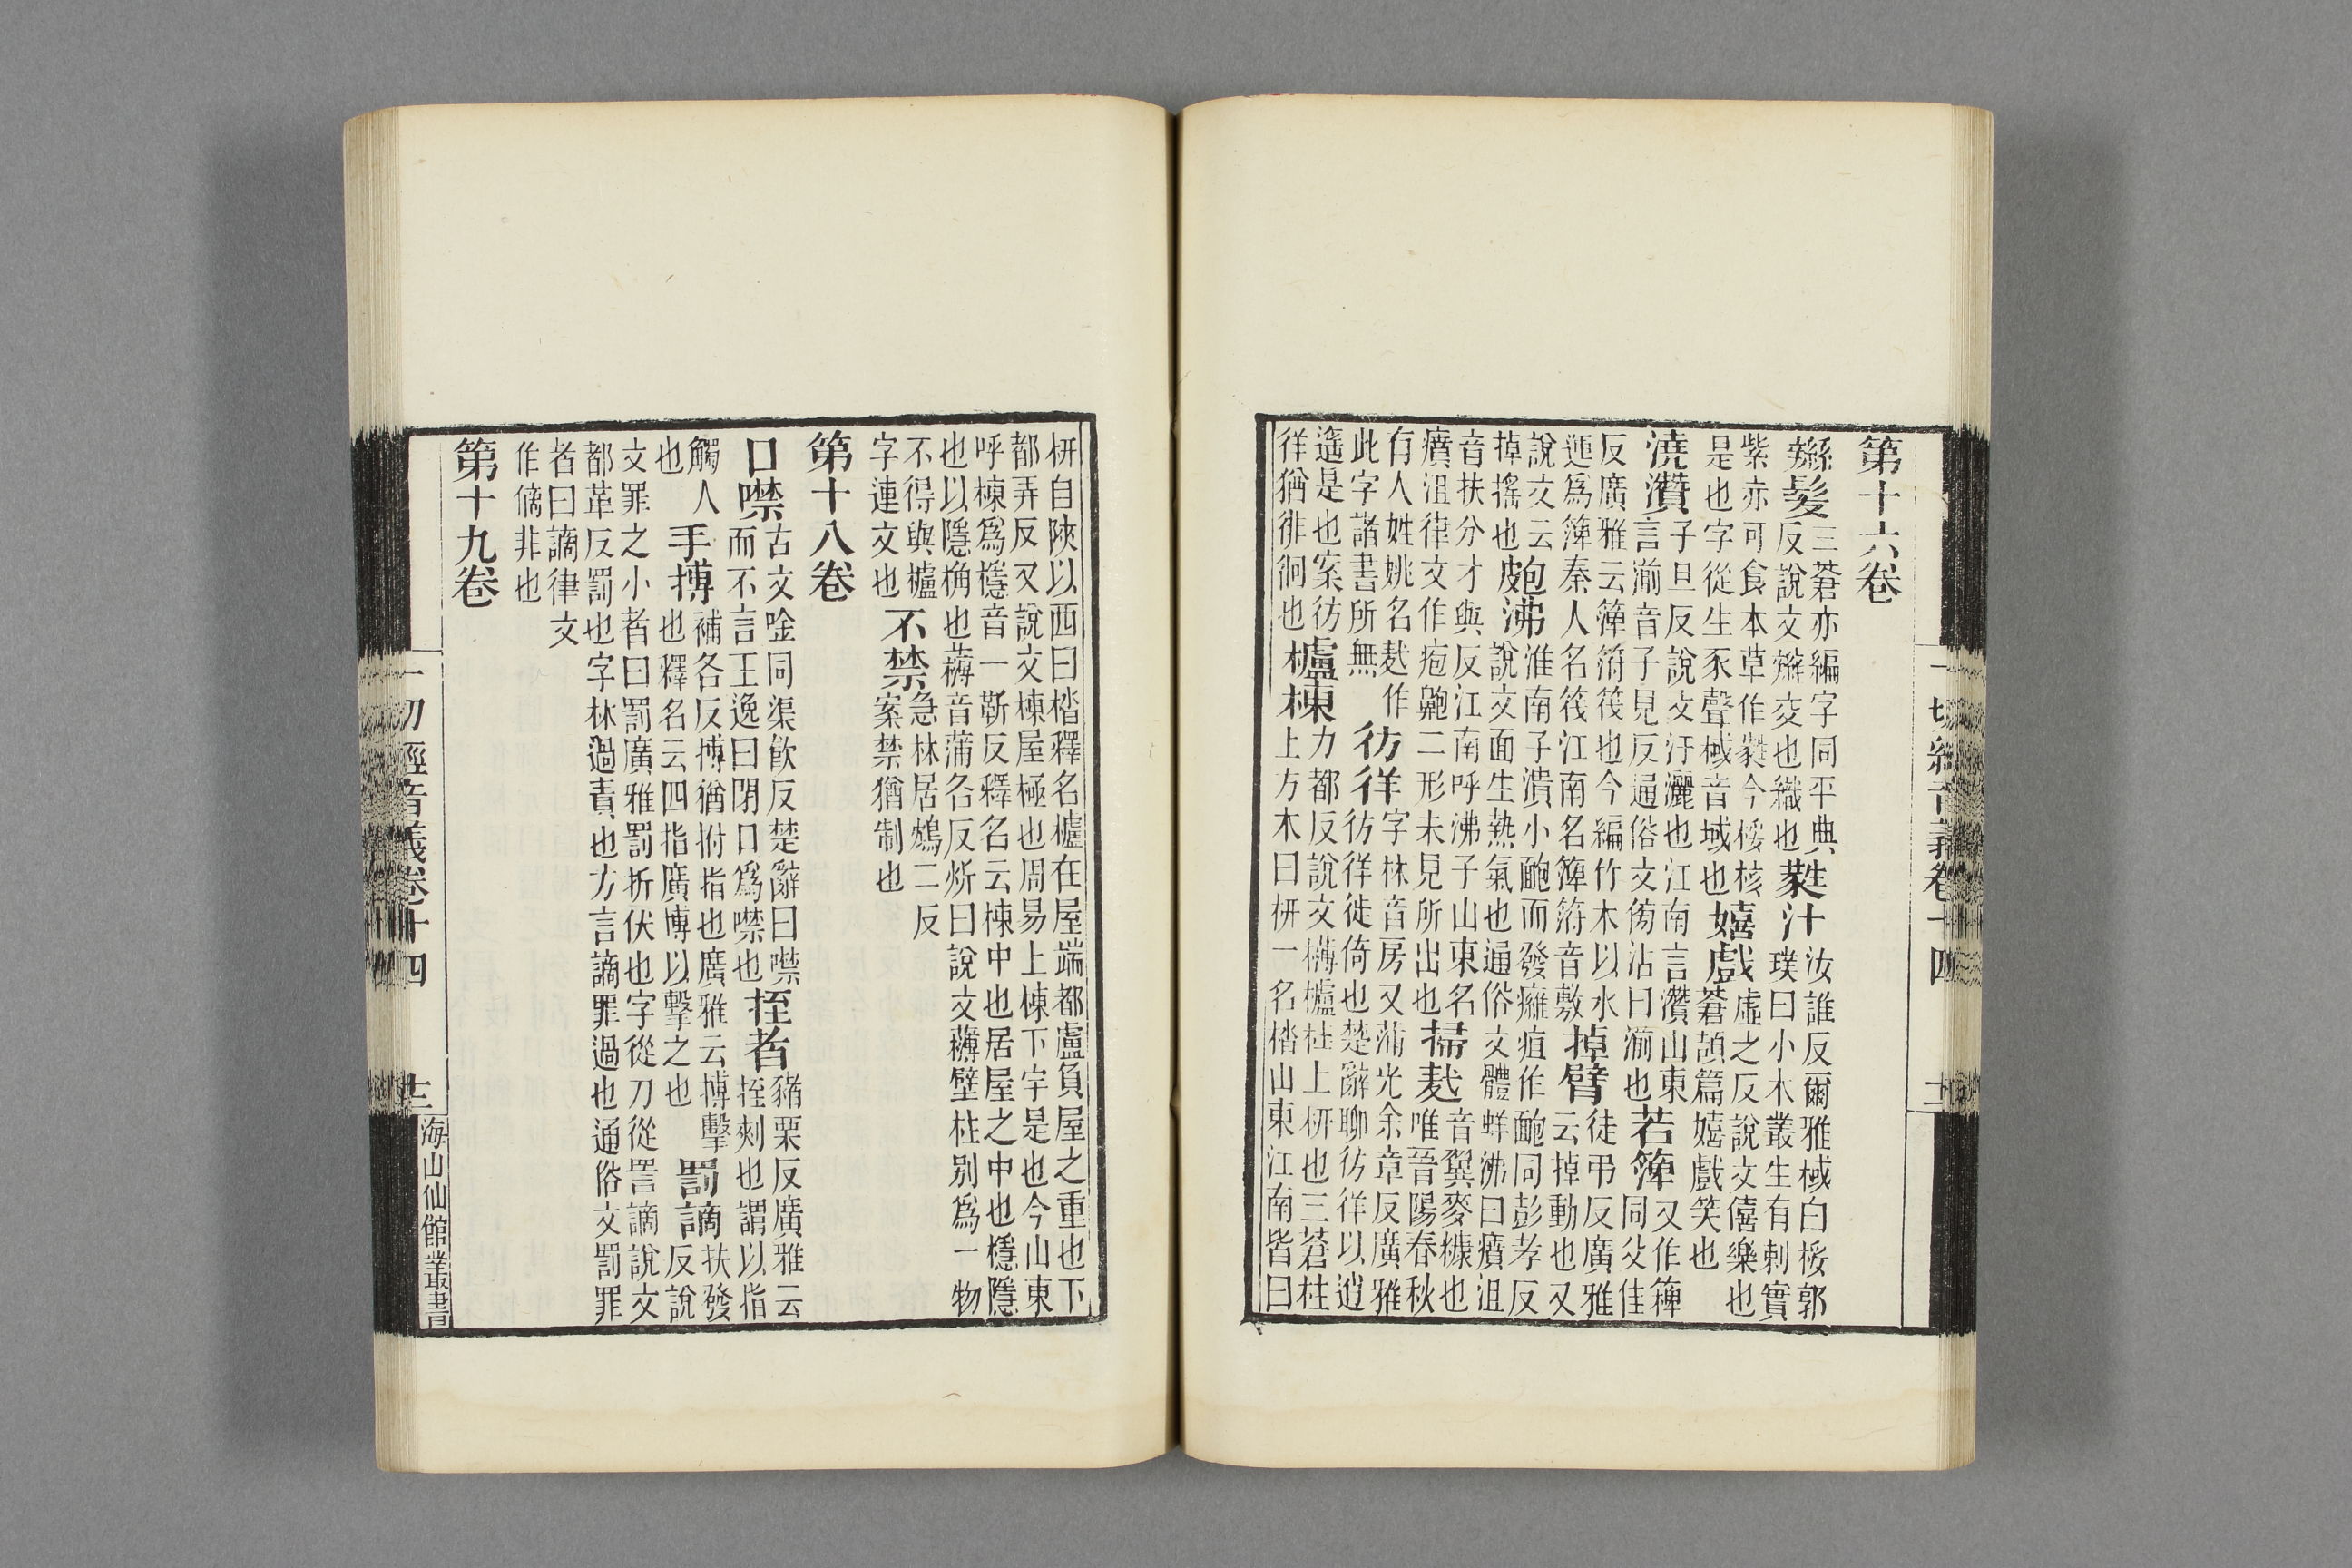 第十六卷
辮髮三蒼亦編字同平典反說文辮交也織也蕤汁汝誰反爾雅棫白桵郭璞曰小木叢生有刺實
紫亦可食本草作蕤今桵核是也字從生豕聲棫音域也嬉戲虛之反說文僖樂也蒼頡篇嬉戲笑也
澆灒子旦反說文汙灑也江南言灒山東言湔音子見反通俗文傍沾曰湔也若箄又作簰同父佳
反廣雅云箄箁筏也今編竹木以水運爲箄秦人名筏江南名箄箁音敷掉臂徒弔反廣雅云掉動也又
說文云掉搖也皰沸淮南子潰小皰而發癰疽作皰同彭孝反說文面生熱氣也通俗文體蚌沸曰癀沮
音扶分才與反江南呼沸子山東名癀沮律文作疱二形未見所出也掃䴬音翼麥糠也唯晉陽春秋
有人姓姚名䴬作此字諸書所無彷徉字林音房又蒲光余章反廣雅彷徉徙倚也楚辭聊彷徉以逍
遙是也案彷徉猶徘徊也櫨棟力都反說文欂櫨柱上枅也三蒼柱上方木曰枅一名楷山東江南皆曰
枅自陝以西曰楷釋名櫨在屋端都盧負屋之重也下都弄反又說文棟屋極也周易上棟下宇是也今山東
呼棟爲檼音一靳反釋名云棟中也居屋之中也檼隱也以隱桷也欂音蒲各反炘曰說文欂壁柱别爲一物
不得與櫨字連文也不禁急林居鴆二反案禁猶制也
第十八卷
口噤古文唫同渠飮反楚辭曰噤而不言王逸曰閉口爲噤也挃者豬栗反廣雅云挃刺也謂以指
觸人也手搏補各反搏猶拊指也廣雅云搏擊也釋名云四指廣博以擊之也罰謫扶發反說
文罪之小者曰罰廣雅罰折伏也字從刀從詈謫說文都革反罰也字林過責也方言謫罪過也通俗文罰罪
者曰謫律文作㒀非也
第十九卷
一切經音義卷十四
十二
一切經音義卷十四
十三
海山仙館叢書